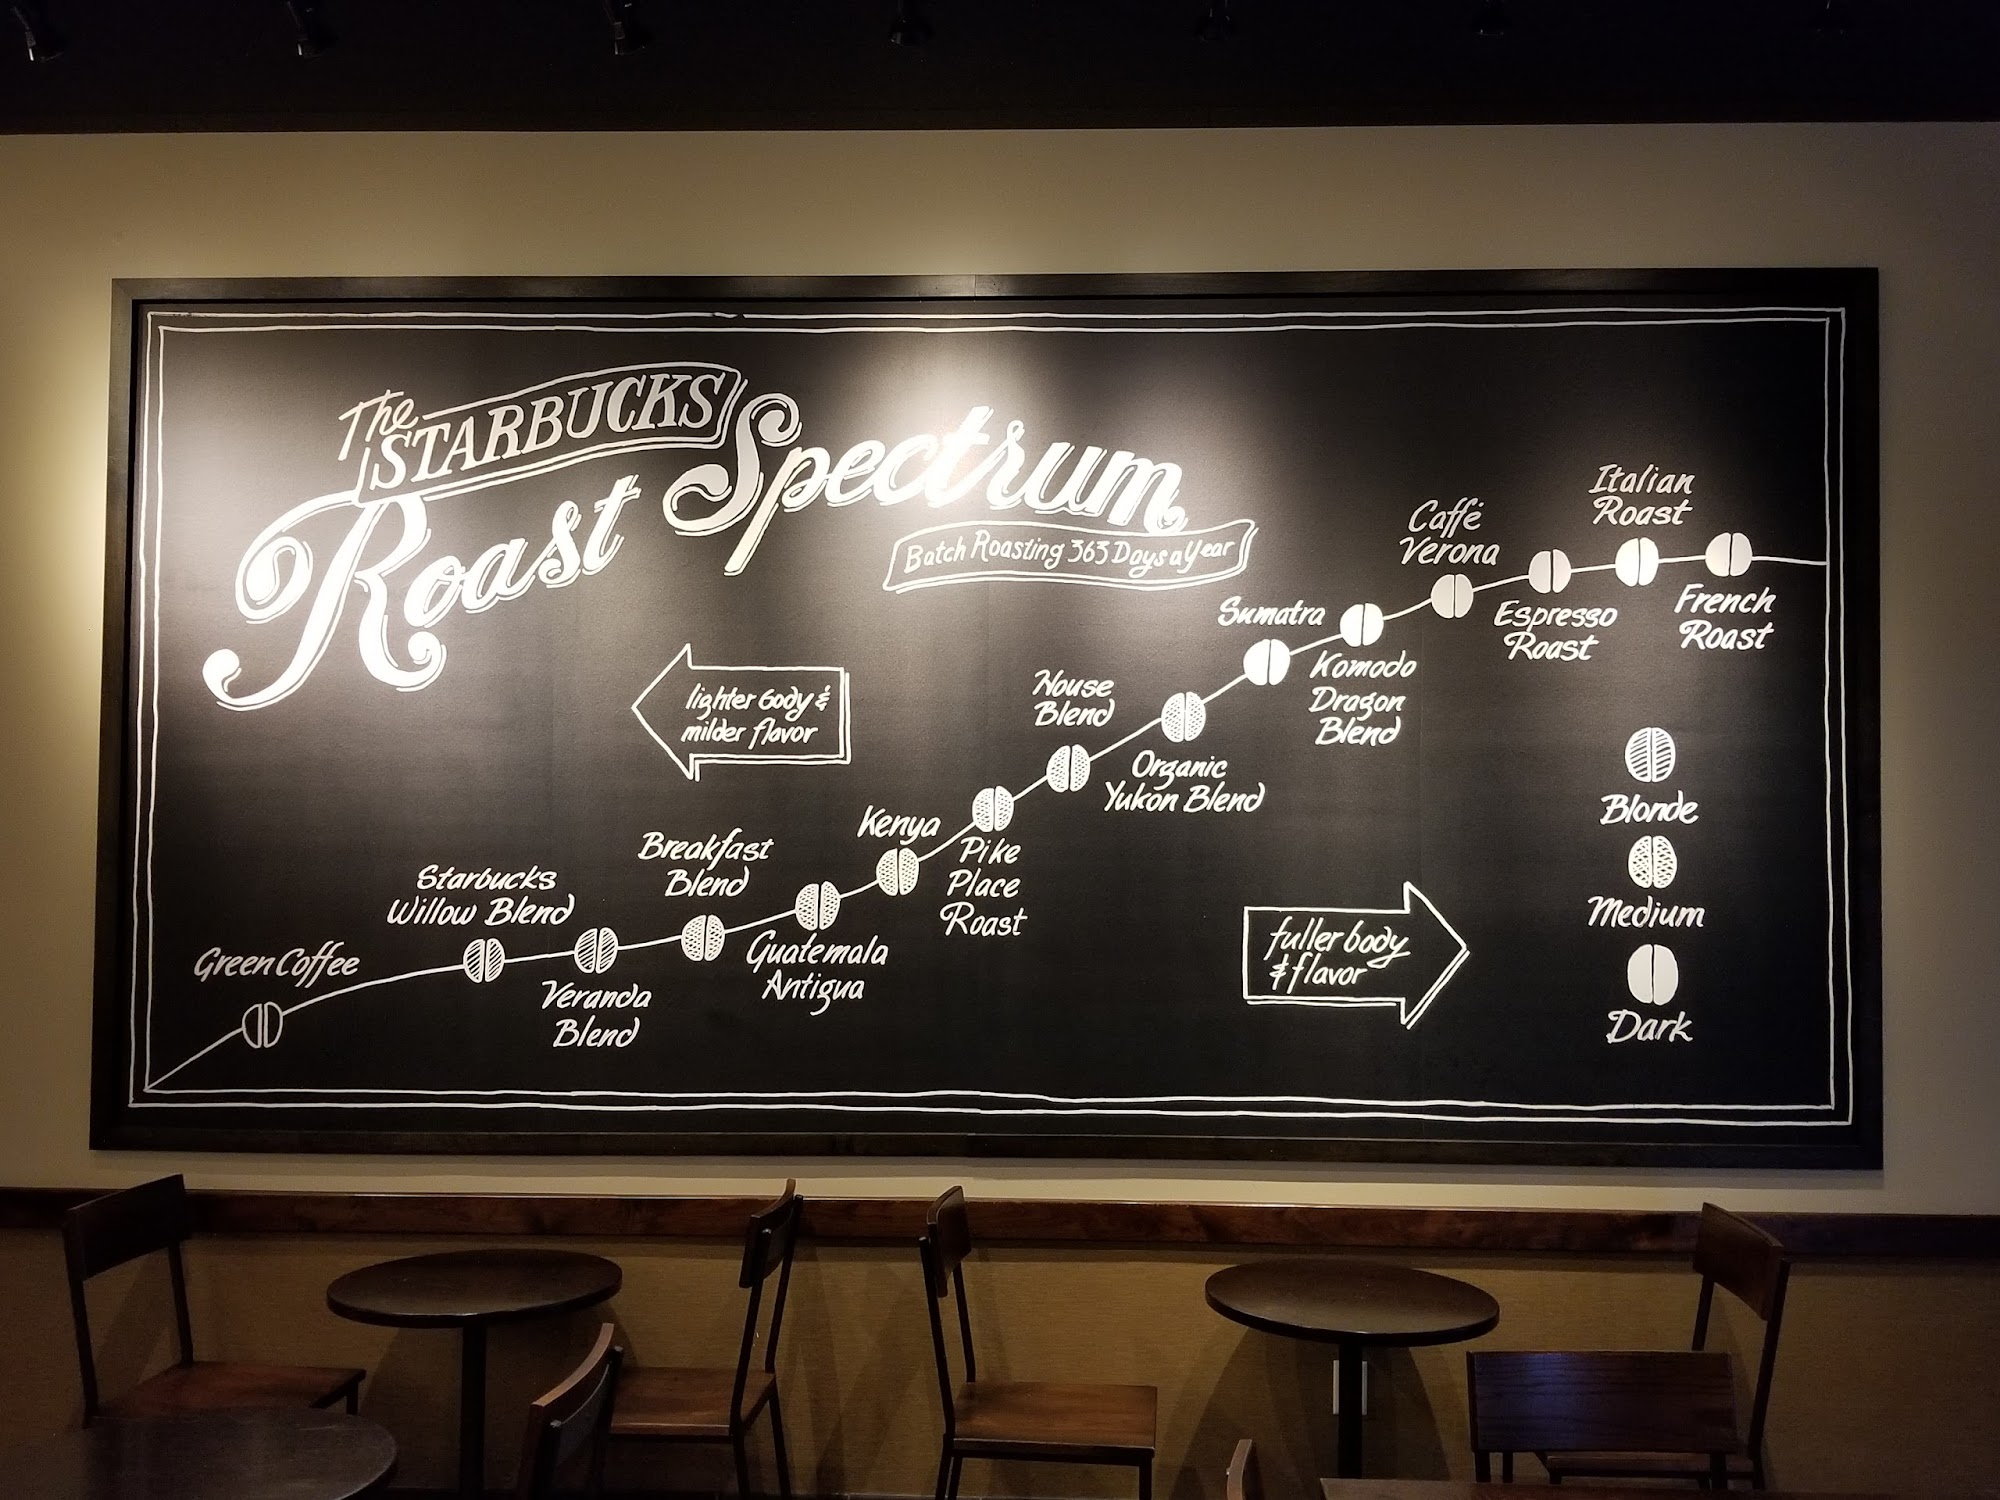 The STARBUCKS
Roast Spectrum
Batch Roasting 363 Days a Year
lighter body &
milder flavor
Green Coffee
Starbucks
Willow Blend
Veranda
Blend
Breakfast
Blend
Guatemala
Antigua
Kenya
Pike
Place
Roast
House
Blend
Organic
Yukon Blend
Sumatra
Komodo
Dragon
Blend
Caffé
Verona
Espresso
Roast
Italian
Roast
French
Roast
fuller body
& flavor
Blonde
Medium
Dark